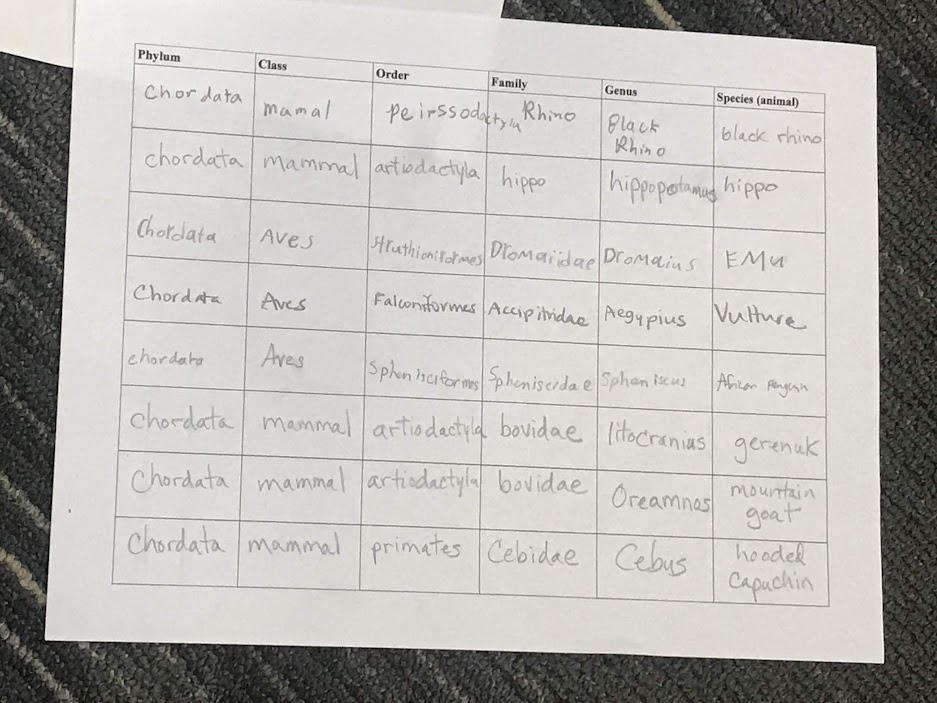 Phylum Class Order Family Genus Species (animal)
Chordata mamal peirssodactyla Rhino Black Rhino black rhino
chordata mammal artiodactyla hippo hippopotamus hippo
Chordata Aves struthioniformes Dromaiidae Dromaius EMu
Chordata Aves Falconiformes Accipitridae Aegypius Vulture
chordata Aves Sphenisciformes Spheniscidae Spheniscus African Penguin
Chordata mammal artiodactyla bovidae litocranius gerenuk
Chordata mammal artiodactyla bovidae Oreamnos mountain goat
Chordata mammal primates Cebidae Cebus hooded Capuchin